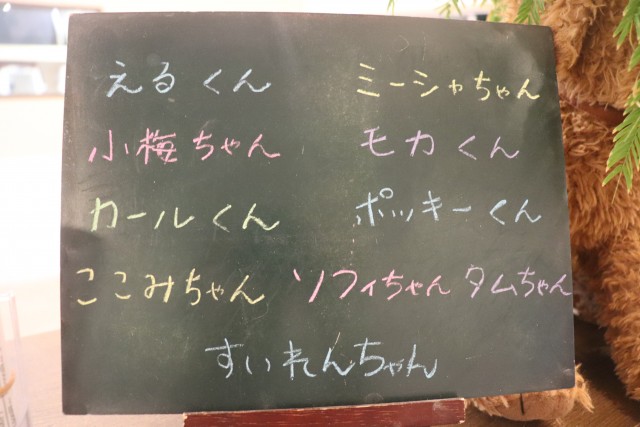 えるくん ミーシャちゃん
小梅ちゃん モカくん
カールくん ポッキーくん
ここみちゃん ソフィちゃん タムちゃん
すいれんちゃん